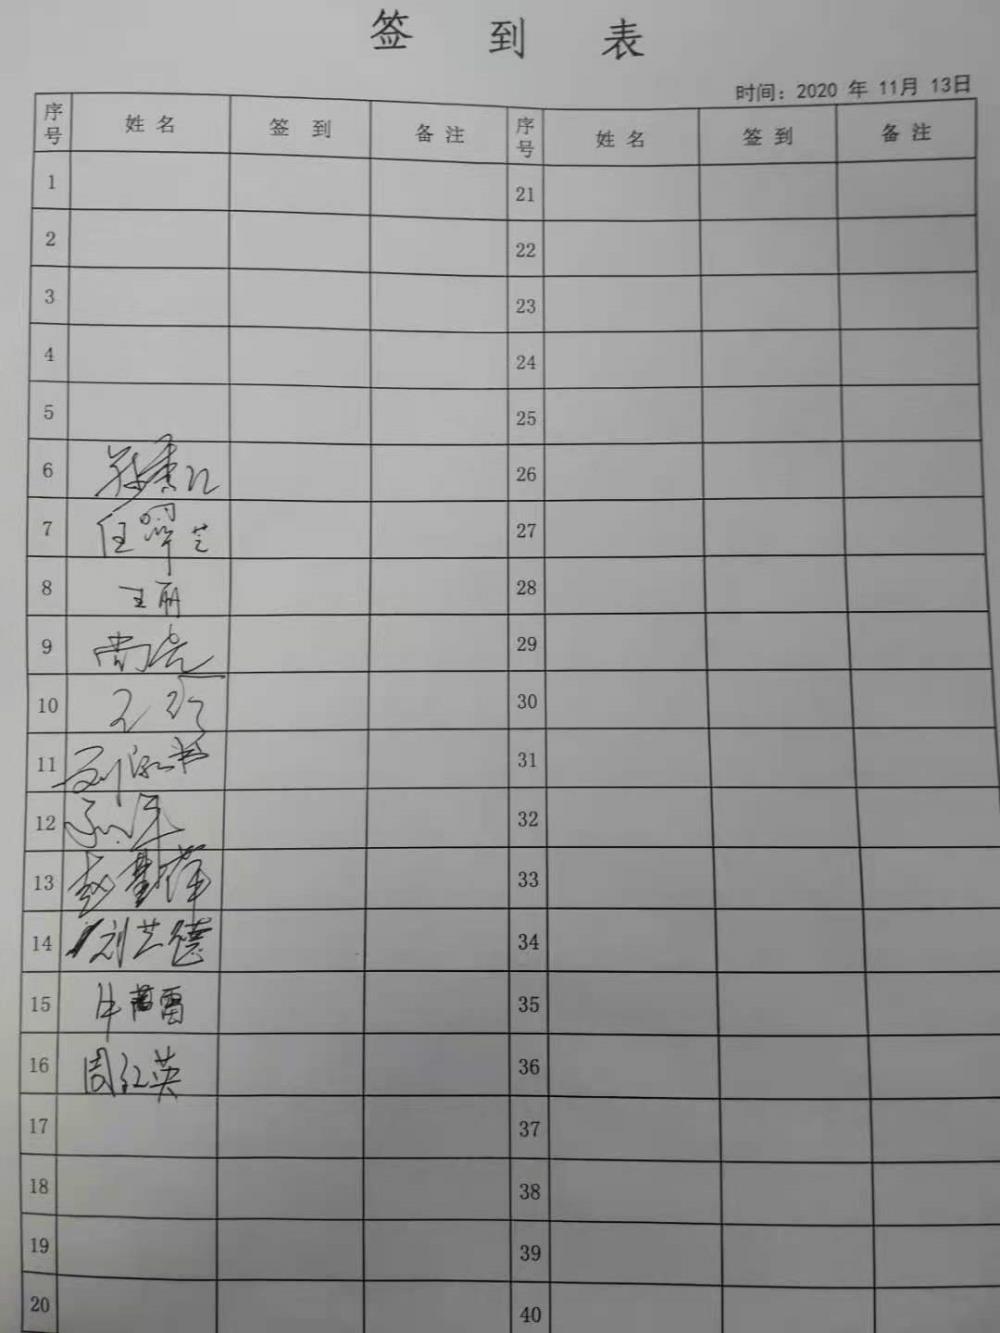 签到表
时间：2020 年 11月 13日
序号 姓名 签到 备注 序号 姓名 签到 备注
1 21
2 22
3 23
4 24
5 25
6 26
7 27
8 王丽 28
9 尚 29
10 30
11 刘 31
12 32
13 赵 33
14 刘兰德 34
15 牛 雷 35
16 周红英 36
17 37
18 38
19 39
20 40